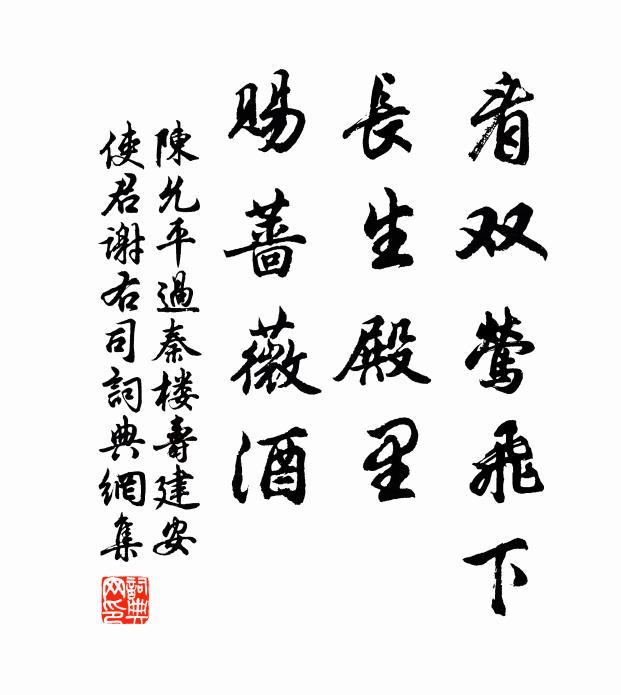 看双莺飞下
長生殿里
賜薔薇酒
陳允平過秦楼壽建安
使君謝右司詞典網集